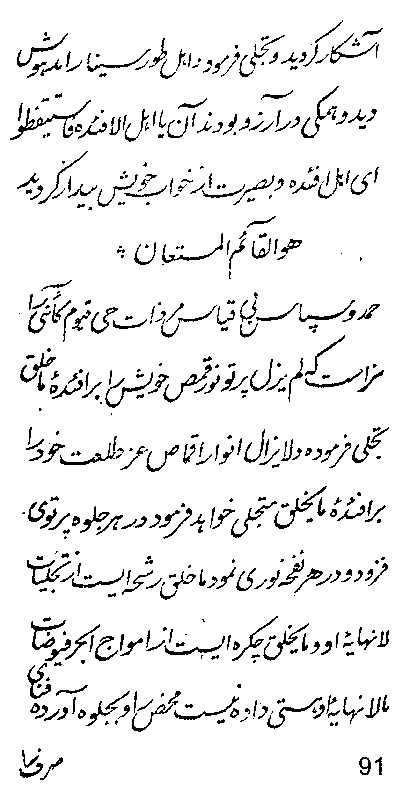 آشکار گردید و تجلی فرمود و اهل طور سینا را مدهوش
دید و همگی در آرزو بودند آن یا اهل الافئده فاستیقظوا
ای اهل افئده و بصیرت از خواب خویش بیدار گردید
هو القائم المستعان
حمد و سپاس بی قیاس مر ذات حی قیوم را
سزاست که لم یزل پرتو نور قمص خویش را بر افئدهٔ ما خلق
تجلی فرموده و لایزال انوار اقماص عز طلعت خود را
بر افئدهٔ ما یخلق متجلی خواهد فرمود در هر جلوه پرتوی
فزود و در هر نفحه نوری نمود ما خلق رشحه ایست از تجلیات
لانهایهٔ او و ما یخلق چکره ایست از امواج ابحر فیوضات
مالانهایهٔ او هستی داده نیست محض را و بجلوه آورده فنای
صرف را
91